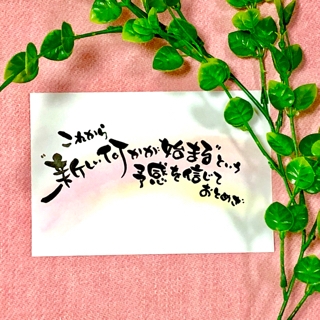 これから
"新しい何かが始まる"という
予感を信じて
おとめざ